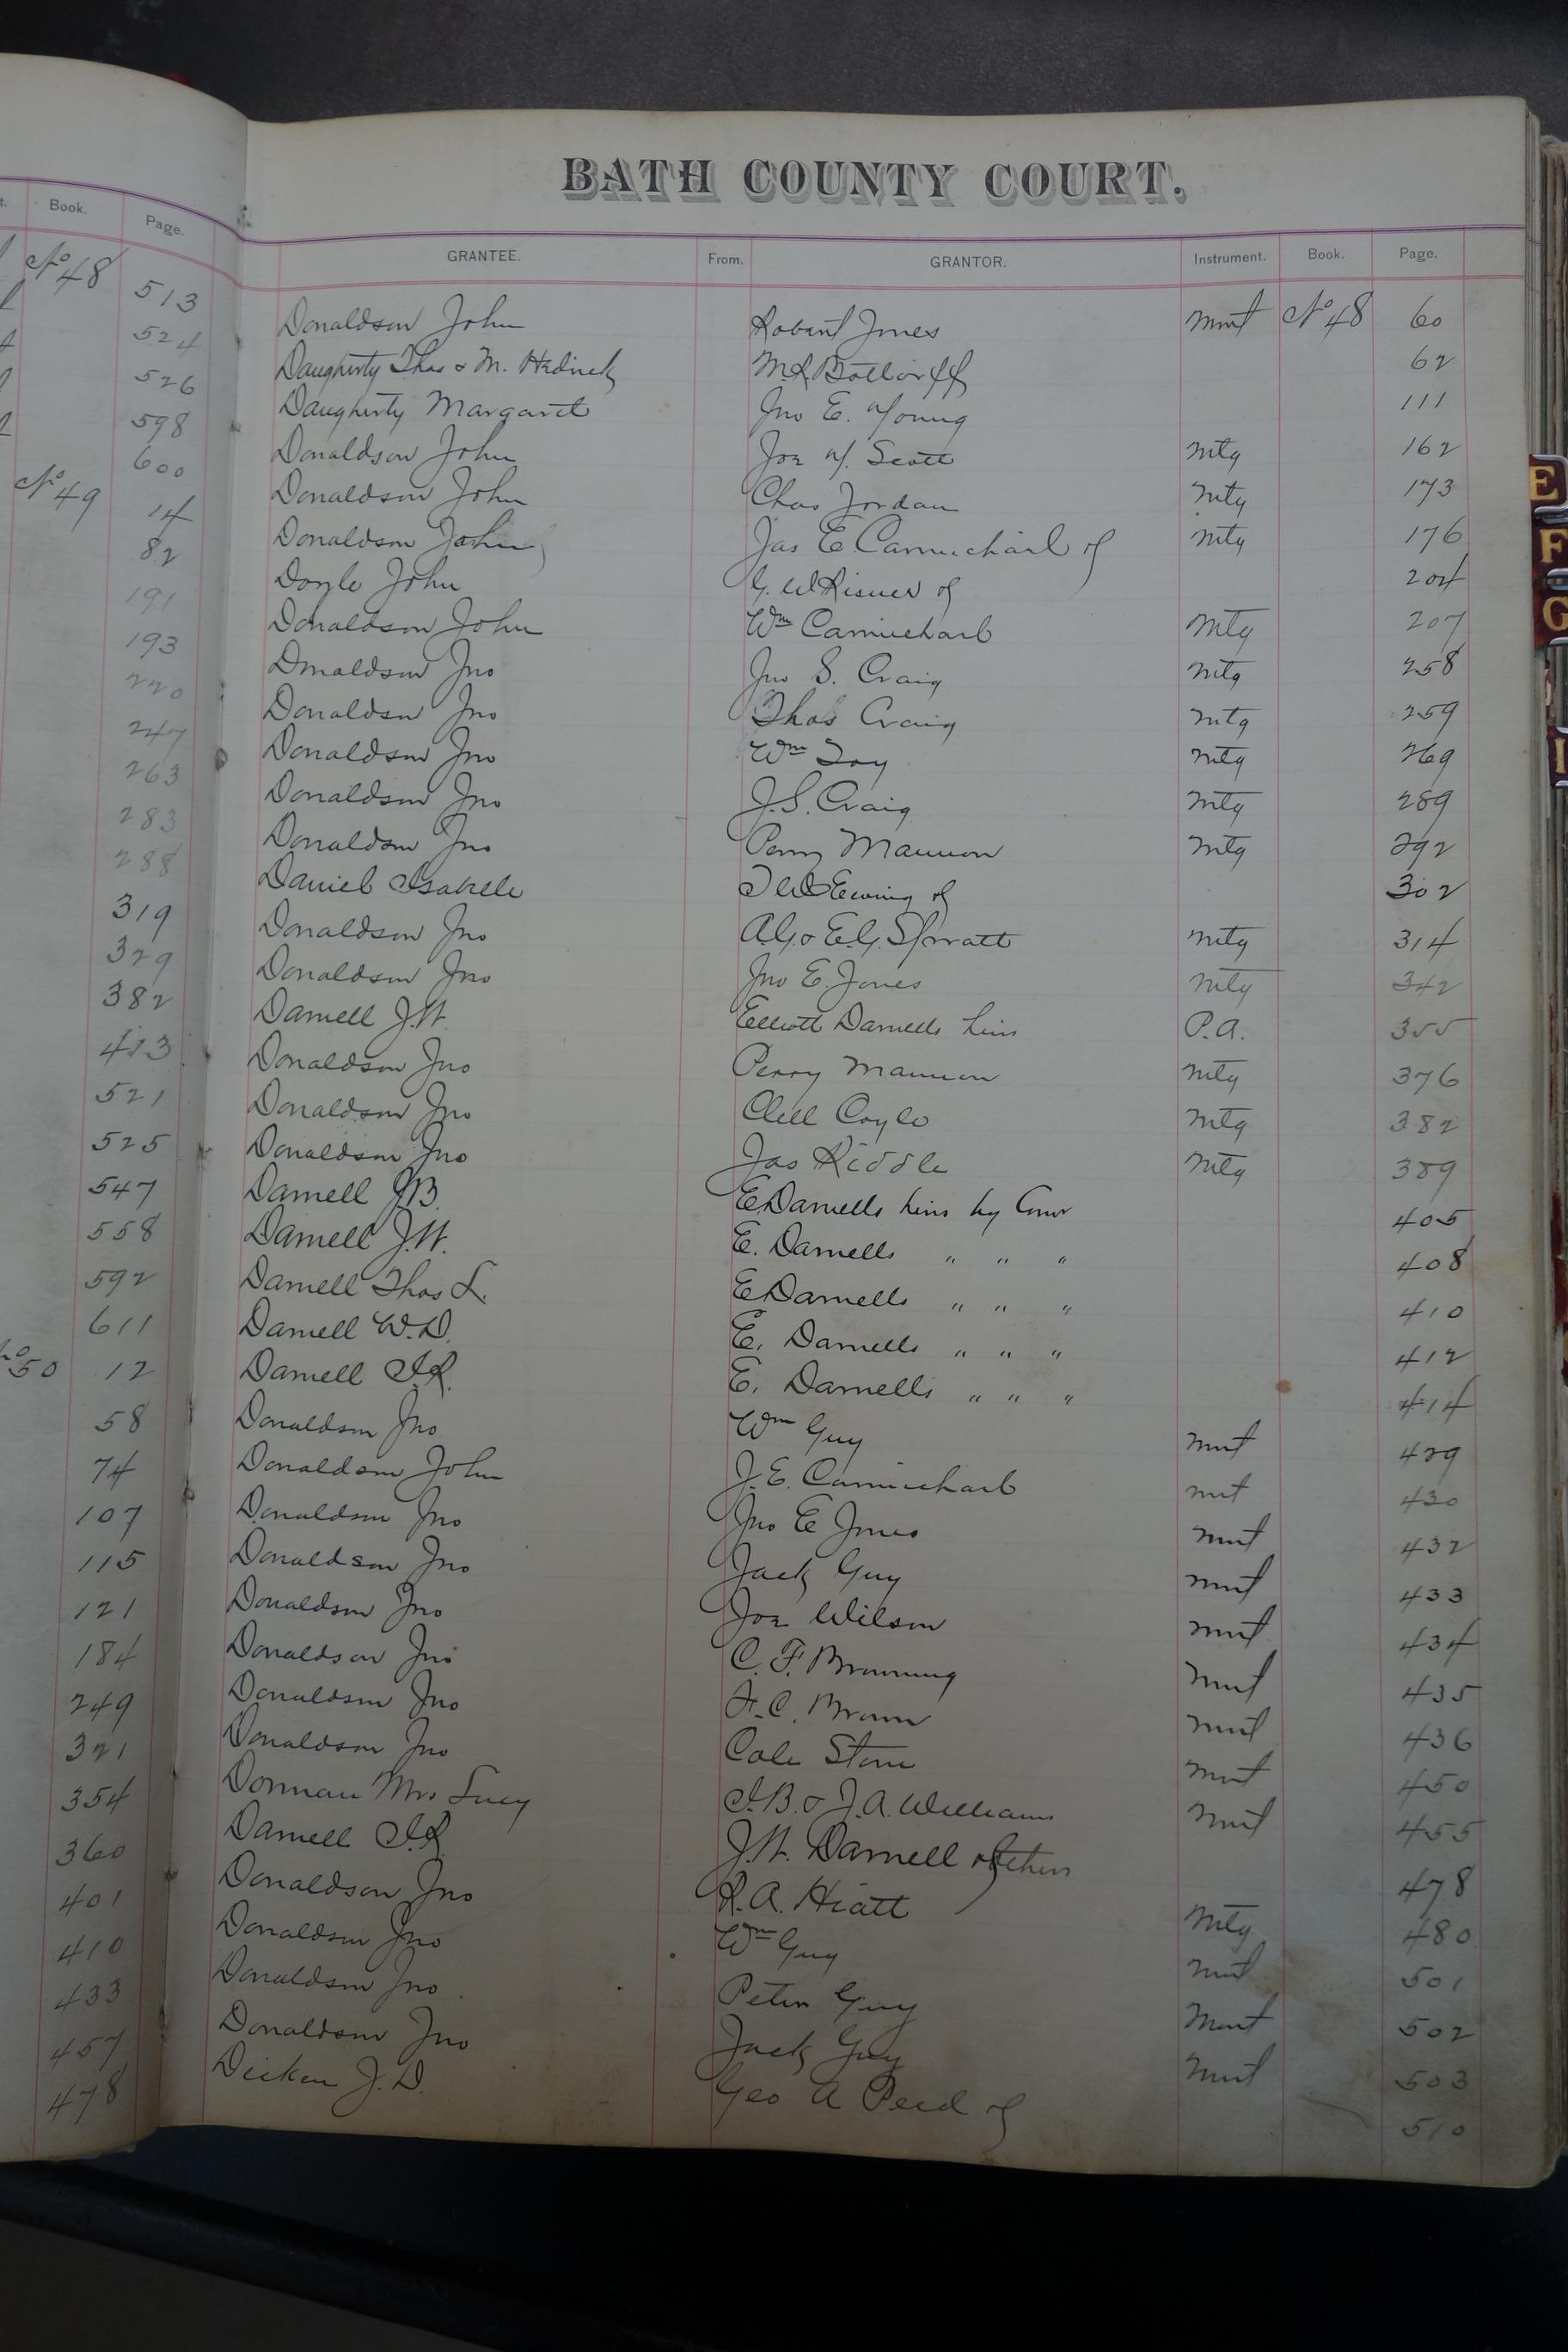 BATH COUNTY COURT.
t. Book. Page.
No 48 513
524
526
598
600
No 49 14
82
191
193
220
247
263
283
288
319
329
382
413
521
525
547
558
592
611
No 50 12
58
74
107
115
121
184
249
321
354
360
401
410
433
457
478
GRANTEE. From. GRANTOR. Instrument. Book. Page.
Donaldson John Robert Jones mnt No 48 60
Daugherty Thos & M. Hedrick M.R. Bottorff 62
Daugherty Margaret Jno E. Young 111
Donaldson John Joe Y. Scott mtg 162
Donaldson John Chas Jordan mtg 173
Donaldson John Jas E Carmichael & mtg 176
Doyle John G. W. Risner & 204
Donaldson John Wm Carmichael mtg 207
Donaldson Jno Jno S. Craig mtg 258
Donaldson Jno Thos Craig mtg 259
Donaldson Jno Wm Toy mtg 269
Donaldson Jno J.S. Craig mtg 289
Donaldson Jno Perry Mannon mtg 292
Daniel Isabelle Ewing & 302
Donaldson Jno A.G. & E.G. Spratt mtg 314
Donaldson Jno Jno E. Jones mtg 342
Darnell J.H. Elliott Darnells heirs P.A. 355
Donaldson Jno Perry Mannon mtg 376
Donaldson Jno Clell Coyle mtg 382
Donaldson Jno Jas Riddle mtg 389
Darnell J.B. E. Darnells heirs by Comr 405
Darnell J.H. E. Darnells " " " 408
Darnell Thos L. E Darnells " " " 410
Darnell W.D. E. Darnells " " " 412
Darnell I.R. E. Darnells " " " 414
Donaldson Jno Wm Guy mnt 429
Donaldson John J.E. Carmichael mnt 430
Donaldson Jno Jno E Jones mnt 432
Donaldson Jno Jack Guy mnt 433
Donaldson Jno Joe Wilson mnt 434
Donaldson Jno C. F. Browning mnt 435
Donaldson Jno H.C. Brown mnt 436
Donaldson Jno Cole Stone mnt 450
Dorman Mrs Lucy I.B. & J.A. Williams mnt 455
Darnell I.R. J.H. Darnell & others 478
Donaldson Jno R.A. Hiatt mtg 480
Donaldson Jno Wm Guy mnt 501
Donaldson Jno Peter Guy mnt 502
Donaldson Jno Jack Guy mnt 503
Dicken J.D. Geo A Peed & 510
E
F
G
I